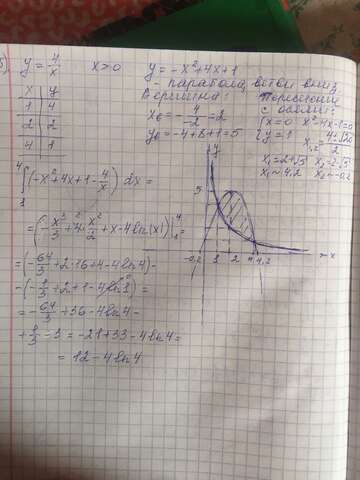 б) y = 4/x    x > 0    y = -x²+4x+1
- парабола, ветви вниз
x | y
1 | 4
2 | 2
4 | 1
Вершина:
xв = -4/-2 = 2
yв = -4+8+1 = 5
с осями:
{x=0
{y=1
x²-4x-1=0
x₁,₂ = 4±√20/2
x₁=2+√5  x₂=2-√5
x₁~4,2  x₂~-0,2
∫₁⁴ (-x²+4x+1-4/x) dx =
= (-x³/3+4·x²/2+x-4ln|x|)|₁⁴ =
= (-64/3+2·16+4-4ln4)-
-(-1/3+2+1-4ln1) =
= -64/3+36-4ln4-
+1/3-3 = -21+33-4ln4 =
= 12-4ln4
y
5
-0,2 1 2 4 4,2 x